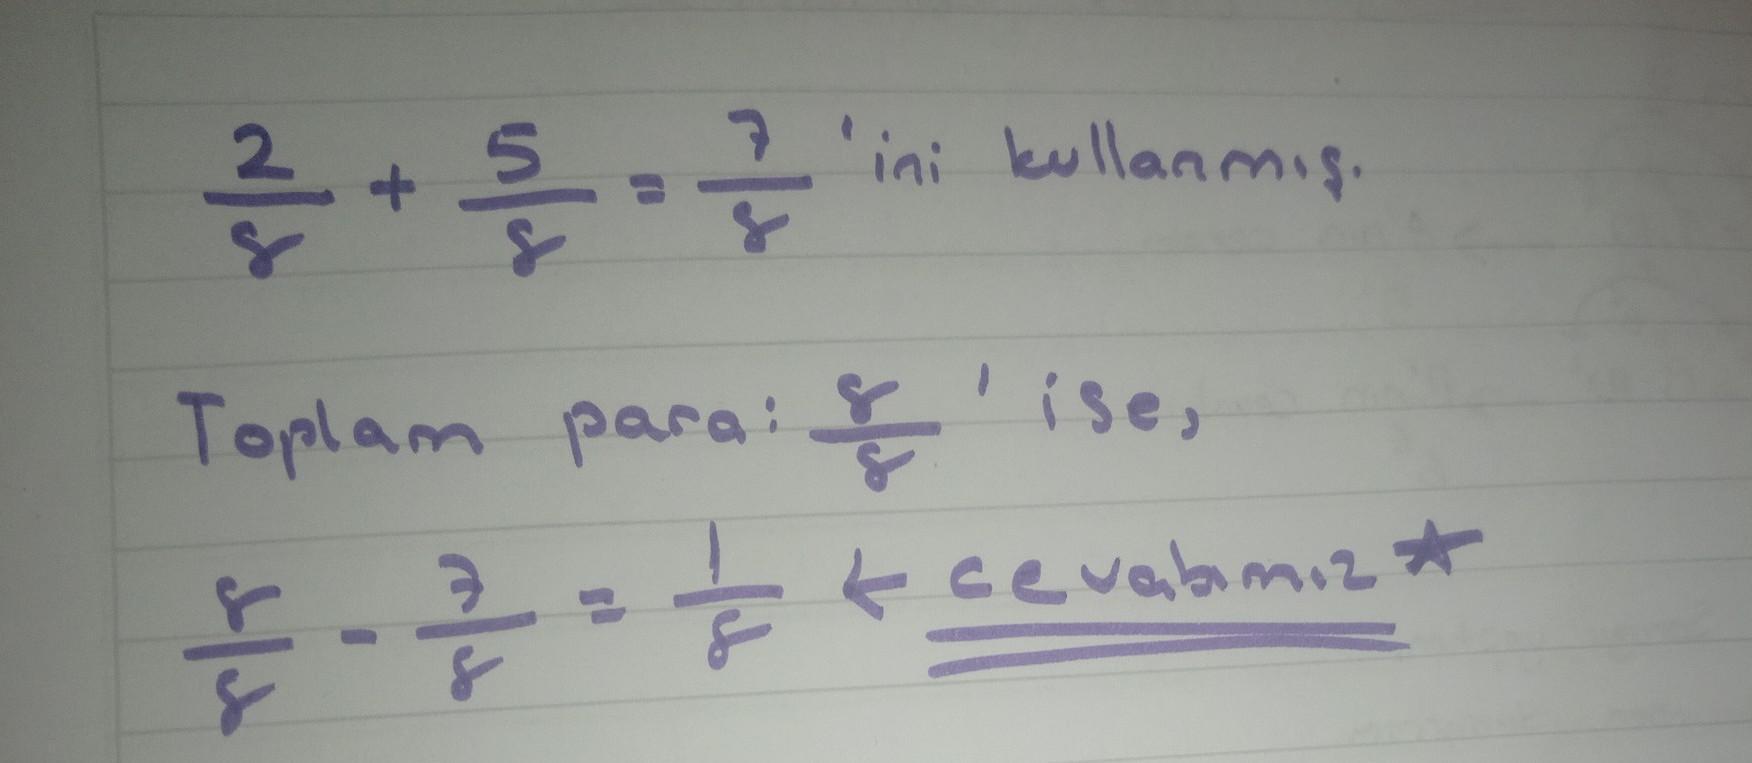 2/8 + 5/8 = 7/8 'ini kullanmış.
Toplam para: 8/8 ' ise,
8/8 - 7/8 = 1/8 ← cevabımız ☆